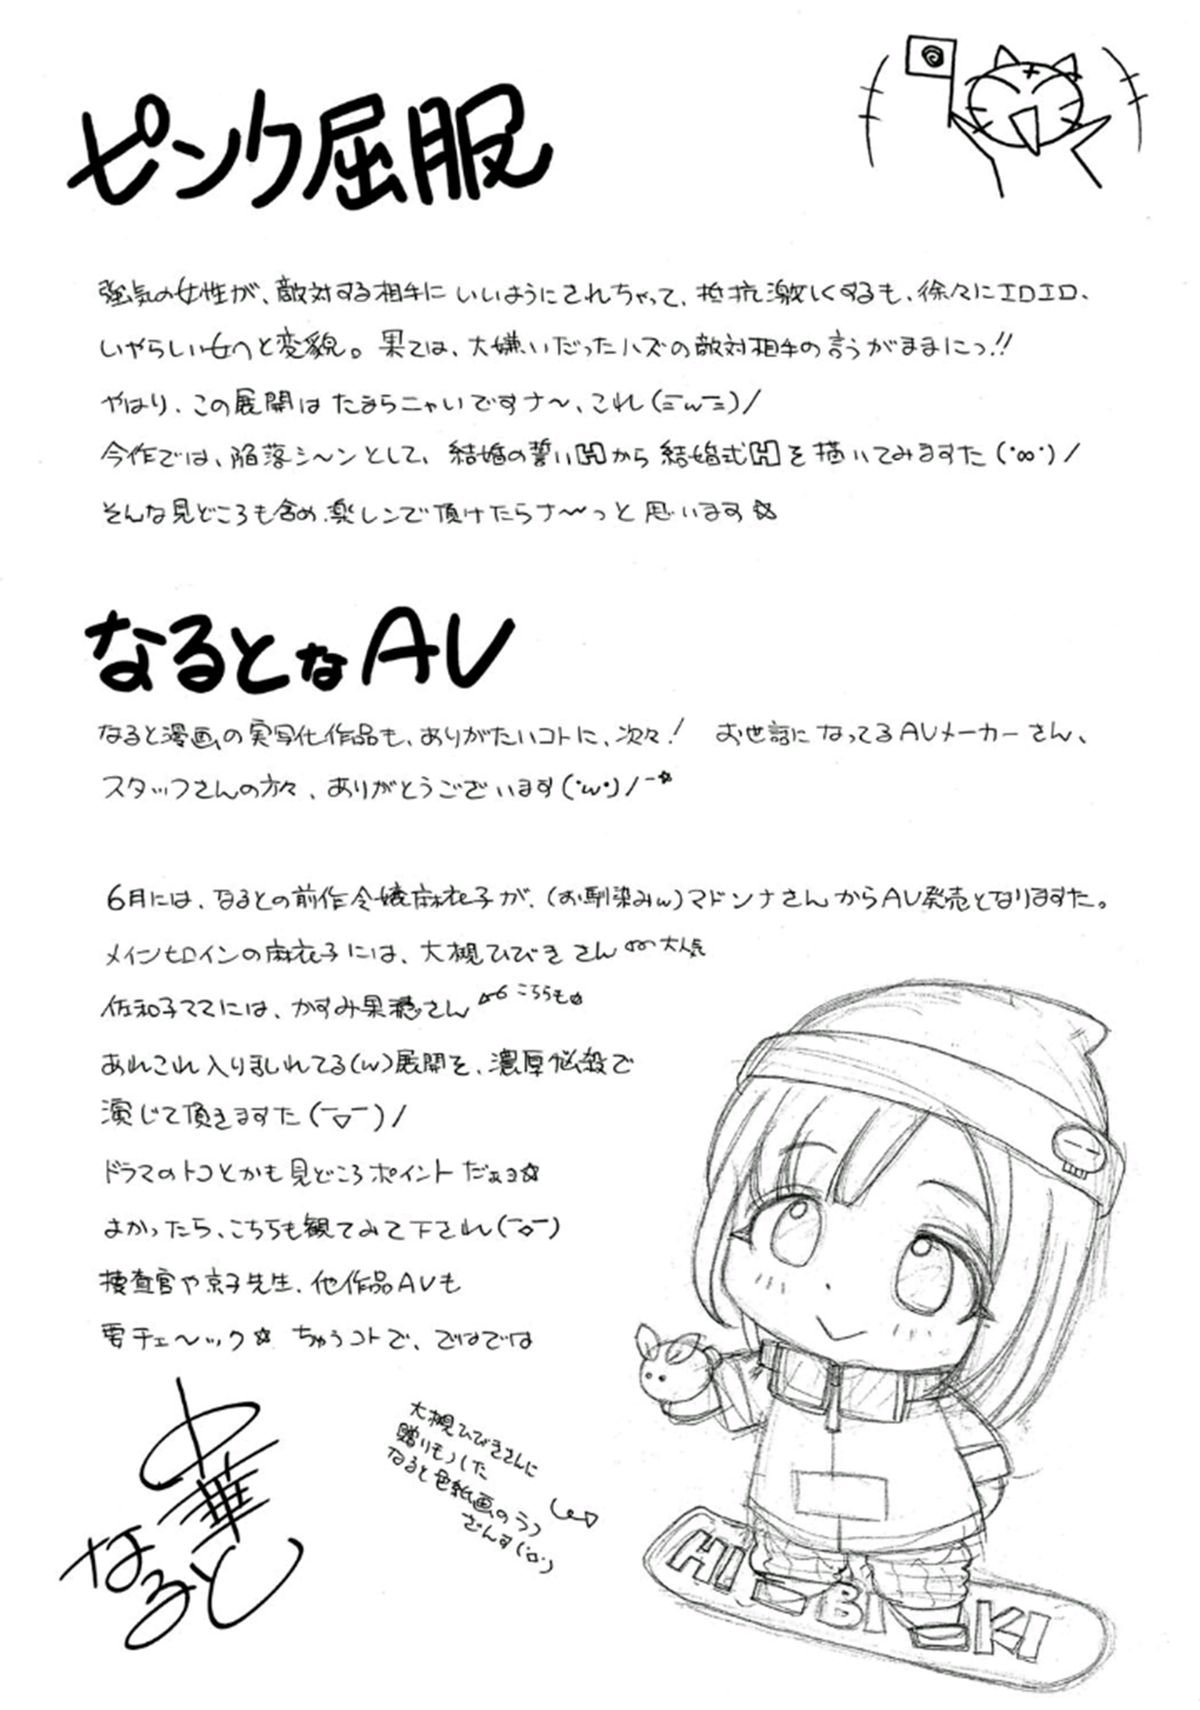 ピンク屈服
強気の女性が、敵対する相手にいいようにされちゃって、抵抗激しくするも、徐々にエロエロ、
いやらしい女へと変貌。果ては、大嫌いだったハズの敵対相手の言うがままにっ!!
やはり、この展開はたまらニャいですナ〜、これ(≡ω≡)/
今作では、陥落シ〜ンとして、結婚の誓いHから結婚式Hを描いてみますた(・∞・)/
そんな見どころも含め、楽レンで頂けたらナ〜っと思います☆
なるとなAV
なると漫画の実写化作品も、ありがたいコトに、次々! お世話になってるAVメーカーさん、
スタッフさんの方々、ありがとうございます(・ω・)/¯☆
6月には、なるとの前作令嬢麻衣子が、(お馴染みw)マドンナさんからAV発売となりますた。
メインヒロインの麻衣子には、大槻ひびきさん 大人気
佐和子ママには、かすみ果穂さん こちらも☆
あれこれ入りましれてる(w)展開を、濃厚悩殺で
演じて頂きますた(¯▽¯)/
ドラマのトコとかも見どころポイントだぁョ☆
よかったら、こちらも観てみて下され(¯◇¯)
捜査官や京子先生、他作品AVも
要チェ〜ック☆ ちゅうコトで、ではでは
中華
なると
大槻ひびきさんに
贈りものした
なると色紙画のラフ
ざんす(・ロ・)
HIBIKI